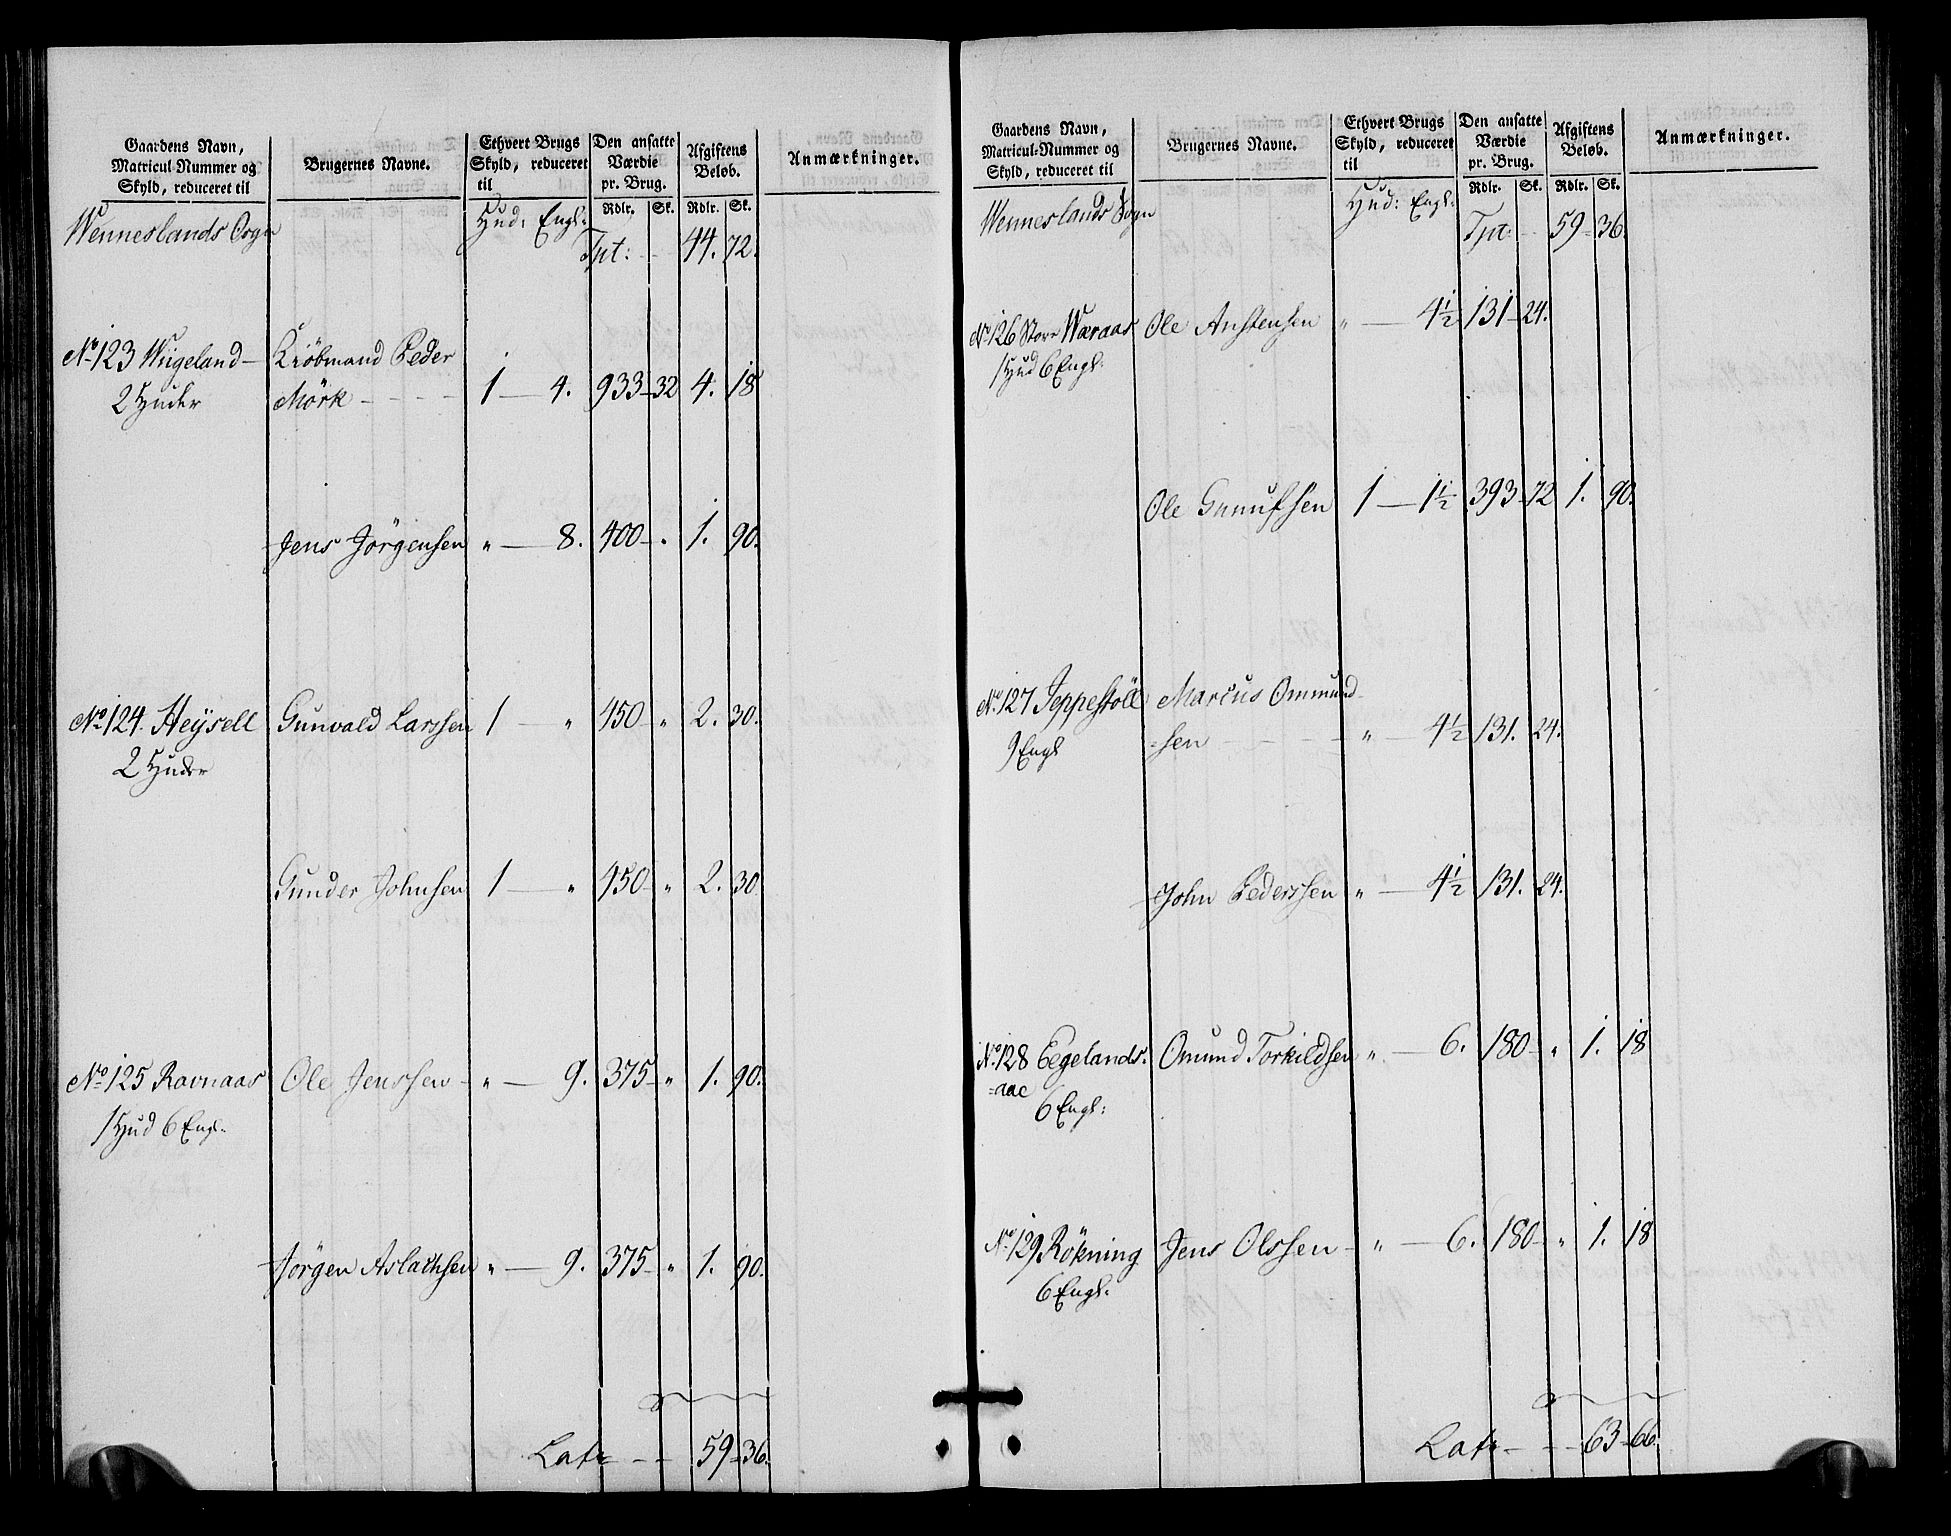 Gaardens Navn, Matricul-Nummer og Skyld, reduceret til
Brugernes Navne.
Ethvert Brugs Skyld, reduceret til
Den ansatte Værdie pr. Brug.
Afgiftens Beløb.
Anmærkninger.
Rdlr. Sk. Rdlr. Sk.
Wenneslands Sogn Hud: Engl:
Tpt: 44. 72.
No 123 Wiigeland Kiöbmand Peder
2 Huder Mörk 1 — 4. 933 32 4. 18
Jens Jörgensen " — 8. 400 " 1. 90.
No 124. Heÿsell Gunvald Larssen 1 " 450 " 2. 30.
2 Huder
Gunder Johnsen 1 — " 450 " 2. 30
No 125 Ravnaas Ole Jenssen " — 9. 375 " 1. 90.
1 Hud 6 Engl.
Jörgen Aslachsen " — 9. 375 " 1. 90.
Lats 59 36.
Gaardens Navn, Matricul-Nummer og Skyld, reduceret til
Brugernes Navne.
Ethvert Brugs Skyld, reduceret til
Den ansatte Værdie pr. Brug.
Afgiftens Beløb.
Anmærkninger.
Rdlr. Sk. Rdlr. Sk.
Wenneslands Sogn Hud: Engl:
Tpt: 59 36.
No 126 Store Waraas Ole Anstensen " — 4½ 131 24.
1 Hud 6 Engl:
Ole Gunufsen 1 — 1½ 393 72 1. 90.
No 127 Jeppestöll Marcus Ommund-
9 Engl =sen " — 4½ 131. 24.
John Pederssen " — 4½ 131. 24.
No 128 Eegelands= Omund Torkildsen " — 6. 180 " 1. 18
=aae
6 Engl:
No 129 Rökning Jens Olssen " — 6. 180 " 1. 18
6 Engl:
Lats 63 66.